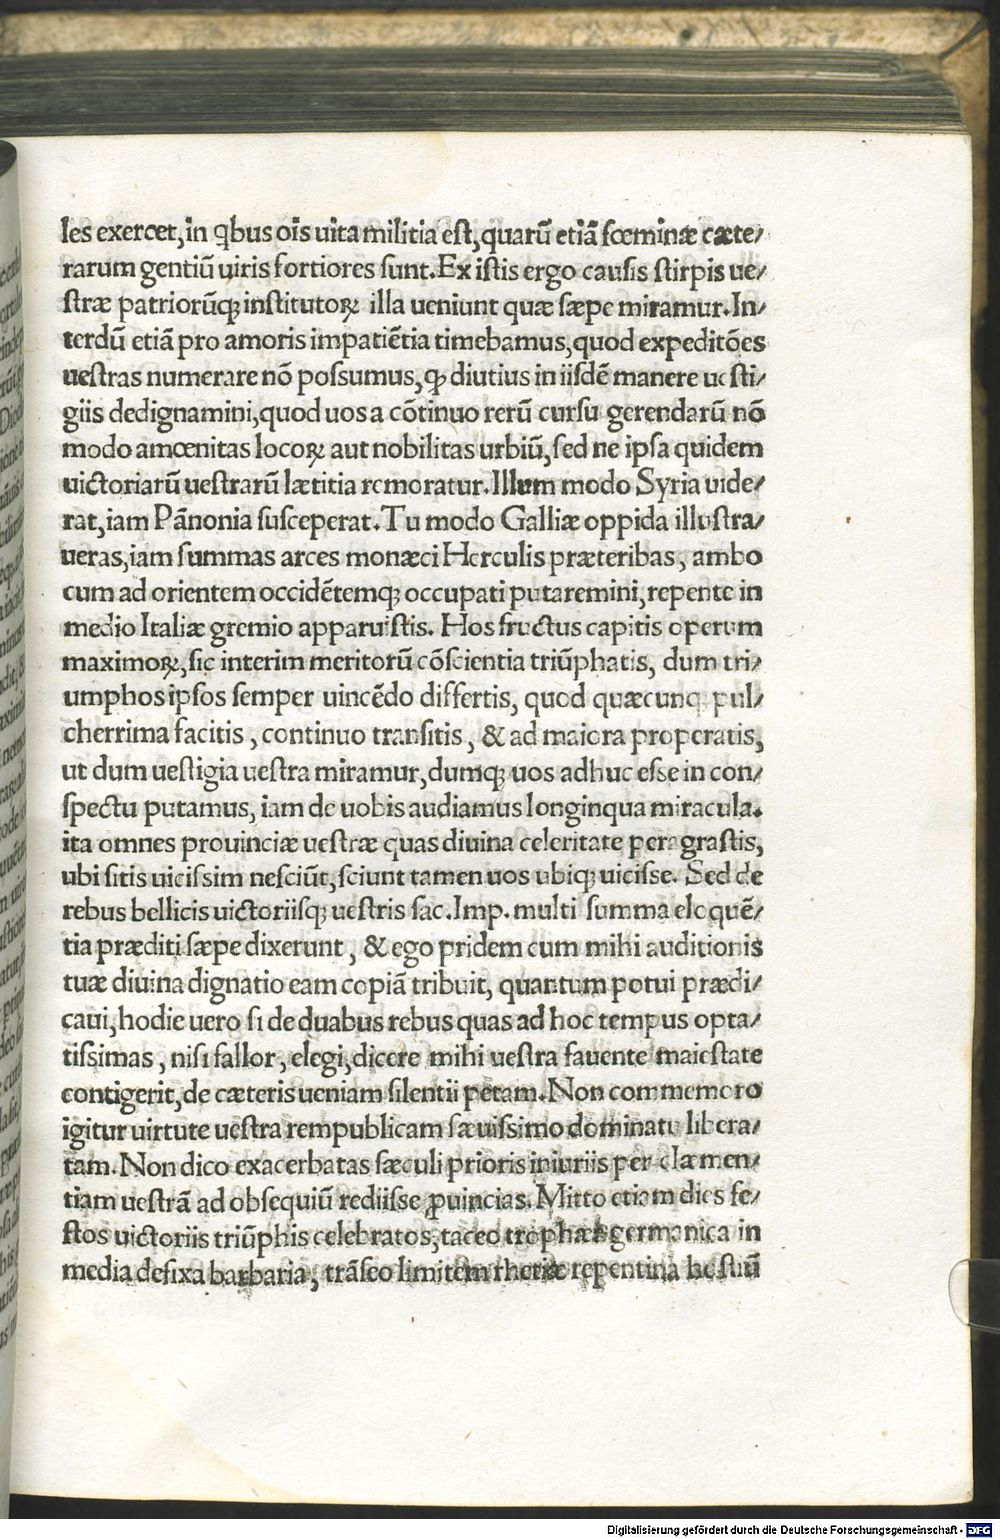 les exercet,in qbus oīs uita militia est,quarū etiā fœminæ cæte/
rarum gentiū uiris fortiores sunt.Ex istis ergo causis stirpis ue/
stræ patriorūq; institutoꝝ illa ueniunt quæ sæpe miramur.In/
terdū etiā pro amoris impatiētia timebamus,quod expeditōes
uestras numerare nō possumus,ꝙ diutius in iisdē manere uesti/
giis dedignamini,quod uos a cōtinuo rerū cursu gerendarū nō
modo amœnitas locoꝝ aut nobilitas urbiū,sed ne ipsa quidem
uictoriarū uestrarū lætitia remoratur.Illum modo Syria uide/
rat,iam Pānonia susceperat.Tu modo Galliæ oppida illustra/
ueras,iam summas arces monæci Herculis præteribas, ambo
cum ad orientem occidētemq; occupati putaremini,repente in
medio Italiæ gremio apparuistis. Hos fructus capitis operum
maximoꝝ,sic interim meritorū cōscientia triūphatis, dum tri/
umphos ipsos semper uincēdo differtis, quod quæcunq; pul/
cherrima facitis , continuo transitis , & ad maiora properatis,
ut dum uestigia uestra miramur,dumq; uos adhuc esse in con/
spectu putamus, iam de uobis audiamus longinqua miracula.
ita omnes prouinciæ uestræ quas diuina celeritate peragrastis,
ubi sitis uicissim nesciūt,sciunt tamen uos ubiq; uicisse. Sed de
rebus bellicis uictoriisq; uestris sac.Imp. multi summa eloquē/
tia præditi sæpe dixerunt , & ego pridem cum mihi auditionis
tuæ diuina dignatio eam copiā tribuit, quantum potui prædi/
caui,hodie uero si de duabus rebus quas ad hoc tempus opta/
tissimas , nisi fallor, elegi,dicere mihi uestra fauente maiestate
contigerit,de cæteris ueniam silentii petam.Non commemoro
igitur uirtute uestra rempublicam sæuissimo dominatu libera/
tam.Non dico exacerbatas sæculi prioris iniuriis per clæmen/
tiam uestrā ad obsequiū rediisse ꝓuincias. Mitto etiam dies fe/
stos uictoriis triūphis celebratos,taceo trophæa germanica in
media defixa barbaria , trāseo limitem rhetiæ repentina hostiū
Digitalisierung gefördert durch die Deutsche Forschungsgemeinschaft - DFG